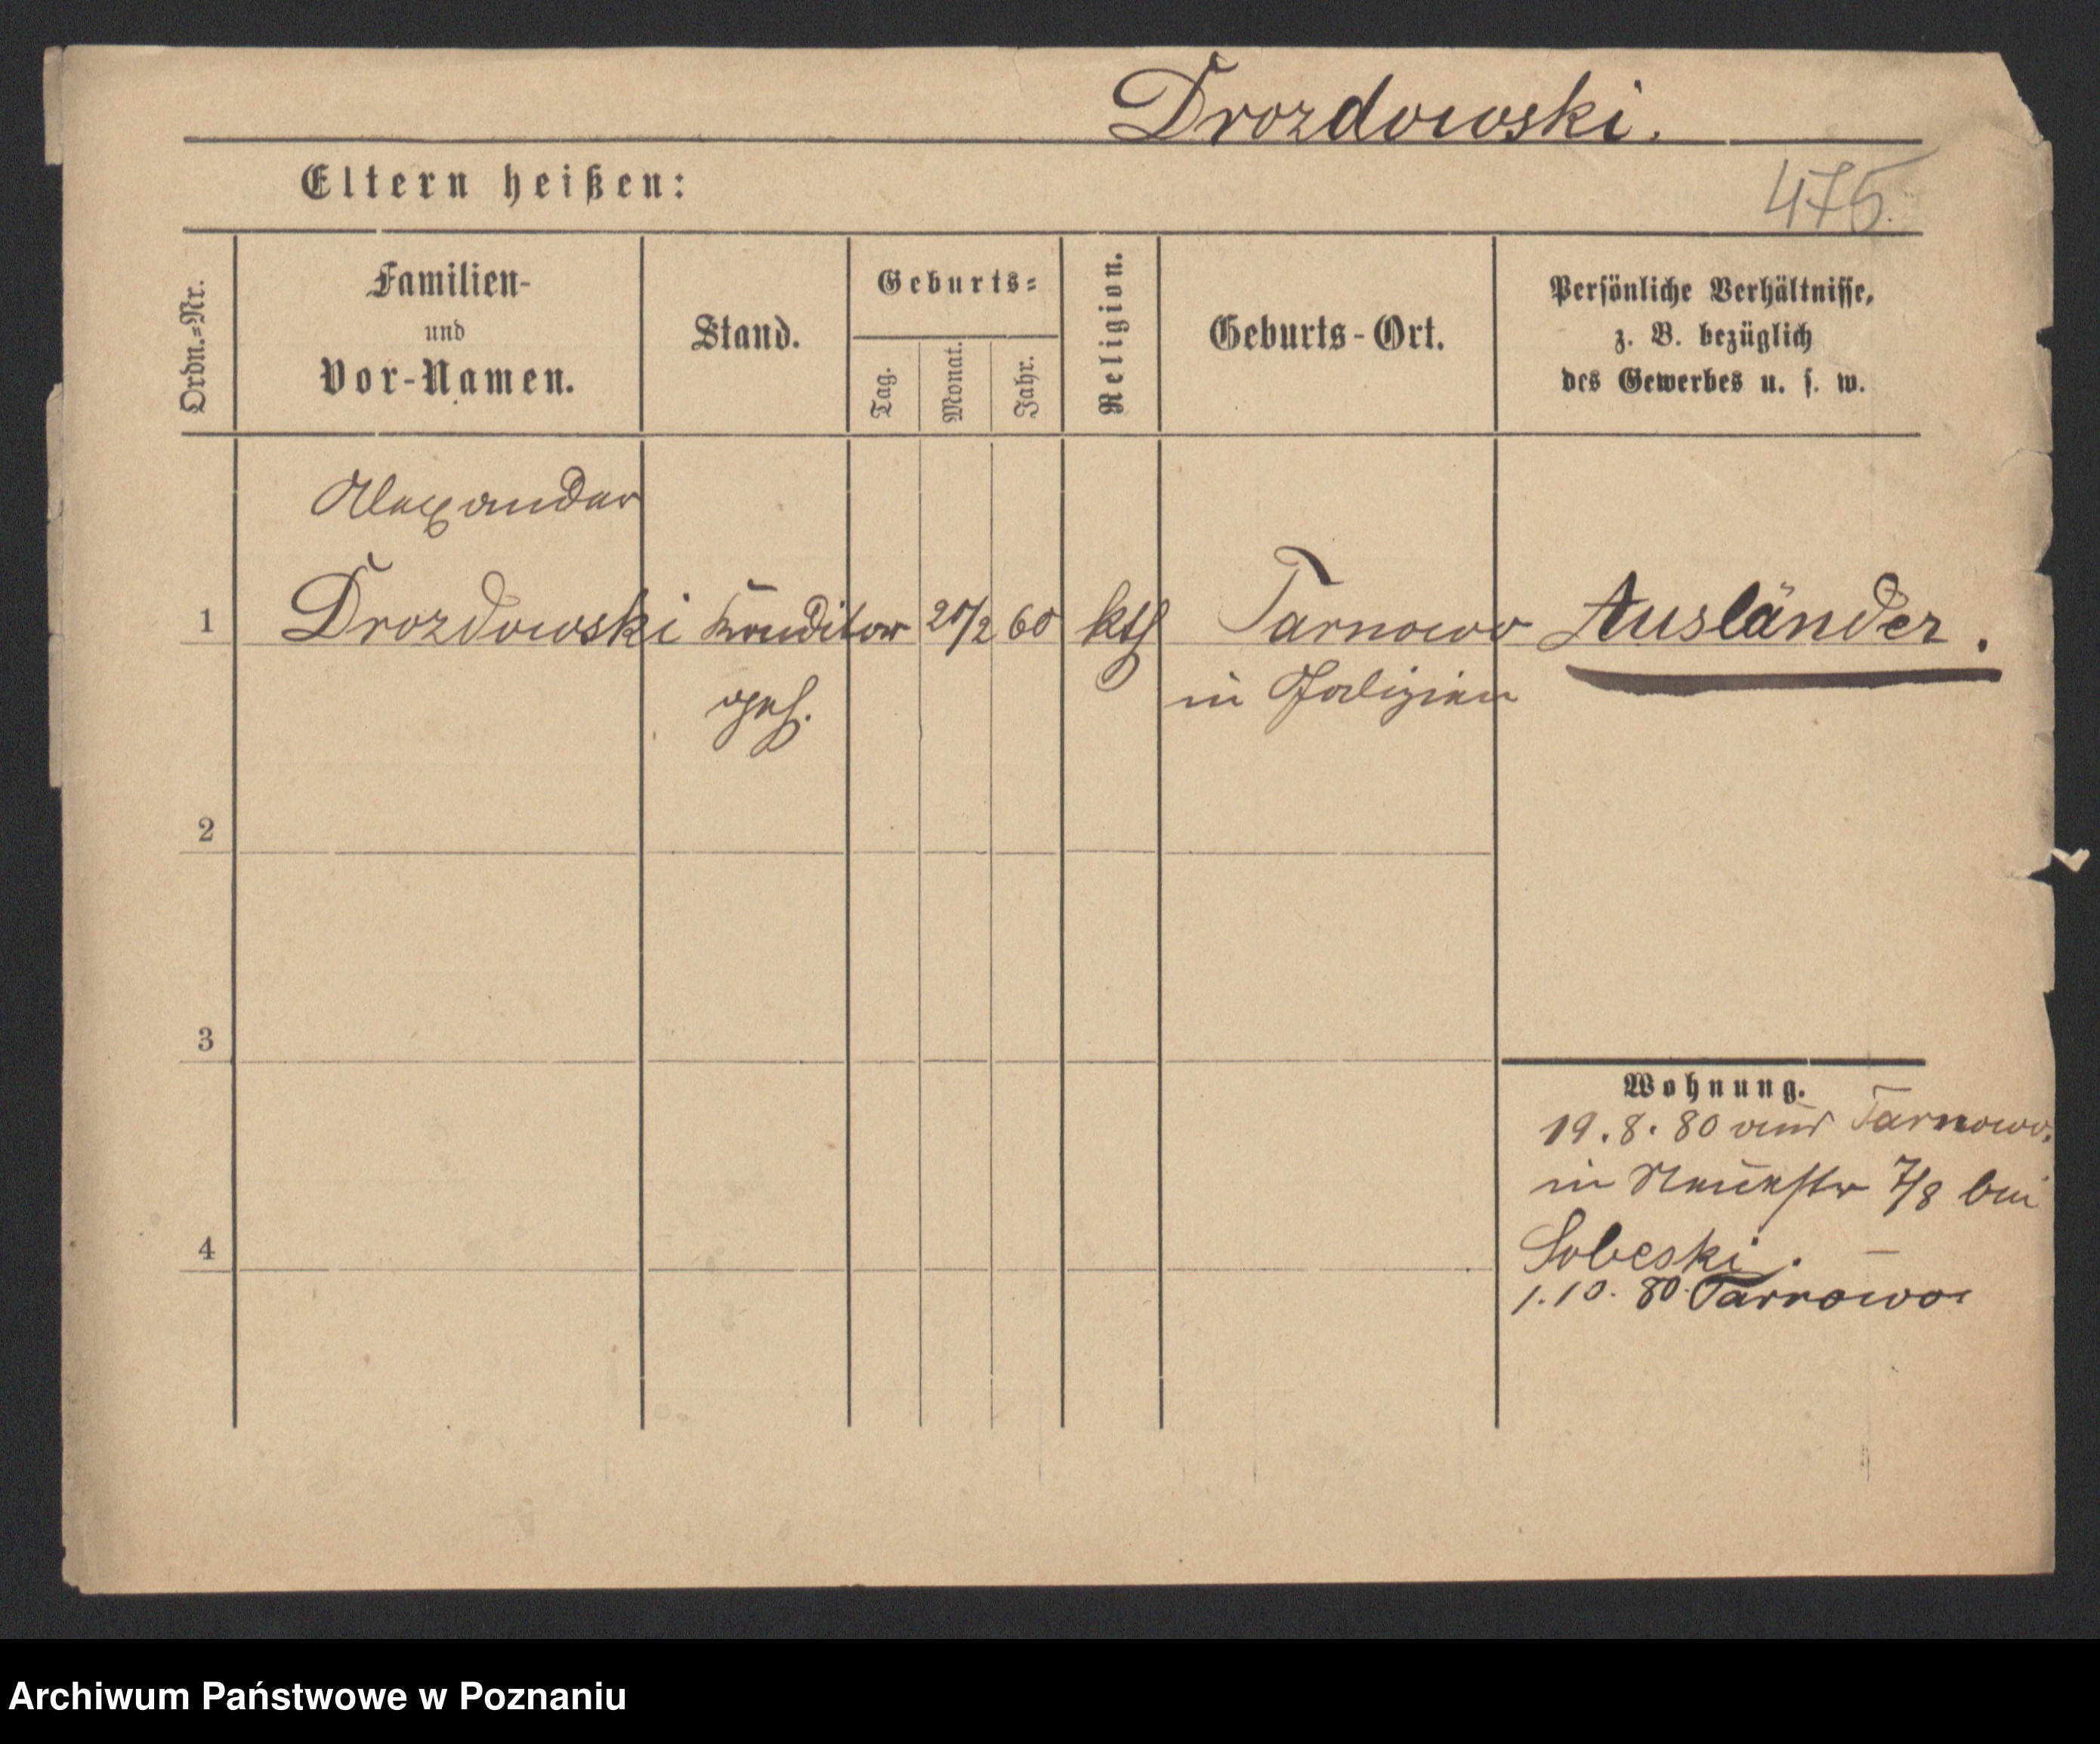 Drozdowski.
Eltern heißen:
475.
Ordn.=Nr.
Familien-
und
Vor-Namen.
Stand.
Geburts=
Tag.
Monat.
Jahr.
Religion.
Geburts-Ort.
Persönliche Verhältnisse,
z. B. bezüglich
des Gewerbes u. s. w.
Alexander
1 Drozdowski Konditor 20/2 60 kth Tarnowo Ausländer.
geh. in Galizien
2
3
Wohnung.
19.8.80 aus Tarnowo.
in Neuestr 7/8 bei
4
Sobeski.
1.10.80. Tarnowo
Archiwum Państwowe w Poznaniu